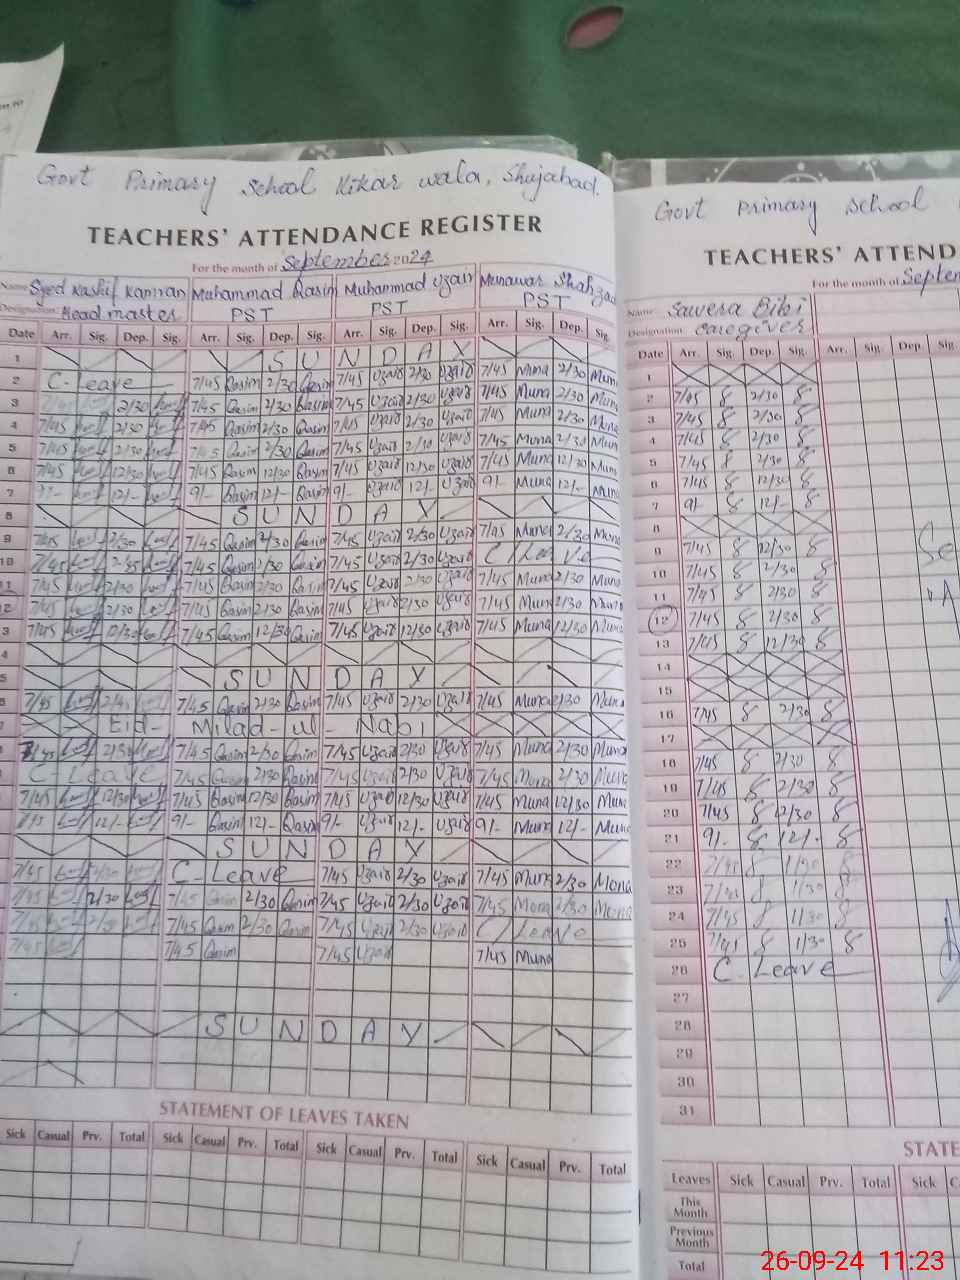 Govt Primary School Kikar wala, Shujabad.
TEACHERS' ATTENDANCE REGISTER
For the month of September 2024
Name Syed Kashif Kamran Muhammad Qasim Muhammad Uzair Munawar Shahzad
Designation Headmaster PST PST PST
Date Arr. Sig. Dep. Sig. Arr. Sig. Dep. Sig. Arr. Sig. Dep. Sig. Arr. Sig. Dep. Sig.
1 SUNDAY
2 C-Leave 7/45 Qasim 2/30 Qasim 7/45 Uzair 2/30 Uzair 7/45 Muna 2/30 Mun
3 2/30 7/45 Qasim 2/30 Qasim 7/45 Uzair 2/30 Uzair 7/45 Muna 2/30 Mun
4 7/45 2/30 7/45 Qasim 2/30 Qasim 7/45 Uzair 2/30 Uzair 7/45 Muna 2/30 Muna
5 7/45 2/30 7/45 Qasim 2/30 Qasim 7/45 Uzair 2/30 Uzair 7/45 Muna 2/30 Mun
6 7/45 12/30 7/45 Qasim 12/30 Qasim 7/45 Uzair 12/30 Uzair 7/45 Muna 12/30 Mun
7 9/- 12/- 9/- Qasim 12/- Qasim 9/- Uzair 12/- Uzair 9/- Muna 12/- Muna
8 SUNDAY
9 7/45 2/30 7/45 Qasim 2/30 Qasim 7/45 Uzair 2/30 Uzair 7/45 Muna 2/30 Muna
10 7/45 2/45 7/45 Qasim 2/30 Qasim 7/45 Uzair 2/30 Uzair C/Leave
11 7/45 2/30 7/45 Qasim 2/30 Qasim 7/45 Uzair 2/30 Uzair 7/45 Muna 2/30 Muna
12 7/45 2/30 7/45 Qasim 2/30 Qasim 7/45 Uzair 2/30 Uzair 7/45 Muna 2/30 Muna
3 7/45 12/30 7/45 Qasim 12/30 Qasim 7/45 Uzair 12/30 Uzair 7/45 Muna 12/30 Muna
4
5 SUNDAY
6 7/45 2/45 7/45 Qasim 2/30 Qasim 7/45 Uzair 2/30 Uzair 7/45 Muna 2/30 Muna
7 Eid- Milad-ul- Nabi
7/45 2/30 7/45 Qasim 2/30 Qasim 7/45 Uzair 2/30 Uzair 7/45 Muna 2/30 Muna
C-Leave 7/45 Qasim 2/30 Qasim 7/45 Uzair 2/30 Uzair 7/45 Muna 2/30 Muna
7/45 12/30 7/45 Qasim 12/30 Qasim 7/45 Uzair 12/30 Uzair 7/45 Muna 12/30 Muna
12/- 9/- Qasim 12/- Qasim 9/- Uzair 12/- Uzair 9/- Muna 12/- Muna
SUNDAY
7/45 2/30 C-Leave 7/45 Uzair 2/30 Uzair 7/45 Muna 2/30 Mona
7/45 2/30 7/45 Qasim 2/30 Qasim 7/45 Uzair 2/30 Uzair 7/45 Mona 2/30 Mona
7/45 2/30 7/45 Qasim 2/30 Qasim 7/45 Uzair 2/30 Uzair C/Leave
7/45 7/45 Qasim 7/45 Uzair 7/45 Muna
SUNDAY
STATEMENT OF LEAVES TAKEN
Sick Casual Prv. Total Sick Casual Prv. Total Sick Casual Prv. Total Sick Casual Prv. Total
Govt Primary School
TEACHERS' ATTEND
For the month of Septem
Name Sawera Bibi
Designation caregiver
Date Arr. Sig. Dep. Sig. Arr. Sig. Dep. Sig.
1
2 7/45 8 2/30 8
3 7/45 8 2/30 8
4 7/45 8 2/30 8
5 7/45 8 2/30 8
6 7/45 8 12/30 8
7 9/- 8 12/- 8
8
9 7/45 8 12/30 8
10 7/45 8 2/30 8
11 7/45 8 2/30 8
12 7/45 8 2/30 8
13 7/45 8 12/30 8
14
15
16 7/45 8 2/30 8
17
18 7/45 8 2/30 8
19 7/45 8 2/30 8
20 7/45 8 12/30 8
21 9/- 8 12/- 8
22 7/45 8 1/30 8
23 7/45 8 1/30 8
24 7/45 8 1/30 8
25 7/45 8 1/30 8
26 C-Leave
27
28
29
30
31
STATE
Leaves Sick Casual Prv. Total Sick
This Month
Previous Month
Total
26-09-24 11:23